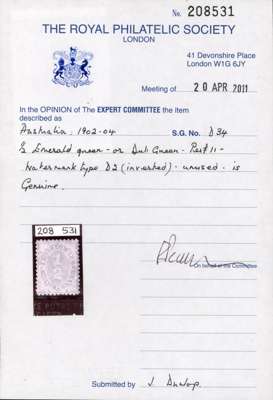 No. 208531
THE ROYAL PHILATELIC SOCIETY
LONDON
41 Devonshire Place
London W1G 6JY
Meeting of 20 APR 2011
In the OPINION of The EXPERT COMMITTEE the item
described as
Australia 1902-04 S.G. No. D34
Emerald green - or Dull Green - Perf 11 -
Watermark type D2 (inverted) - unused - is
Genuine.
208 531
On behalf of the Committee
Submitted by J. Dunlop.